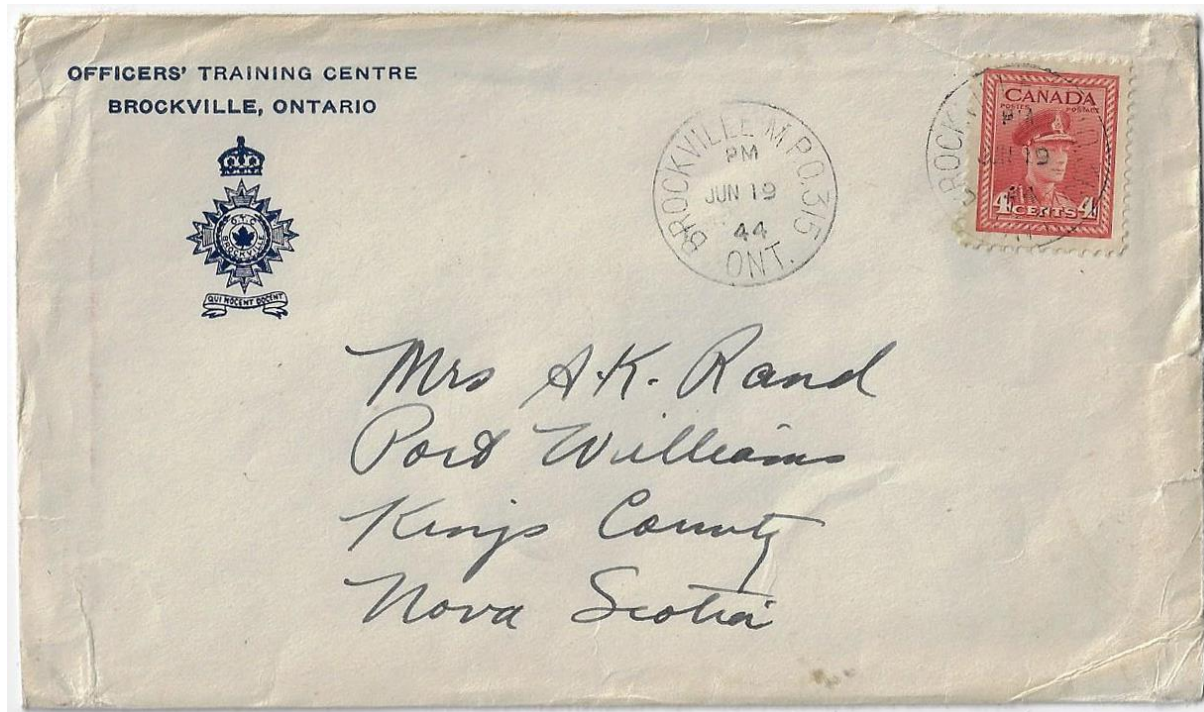 OFFICERS' TRAINING CENTRE
BROCKVILLE, ONTARIO
O.T.C.
BROCKVILLE
QUI NOCENT DOCENT
BROCKVILLE M.P.O. 315
PM
JUN 19
44
ONT.
CANADA
POSTES POSTAGE
JUN 19
4 CENTS 4
Mrs A.K. Rand
Port Williams
Kings County
Nova Scotia